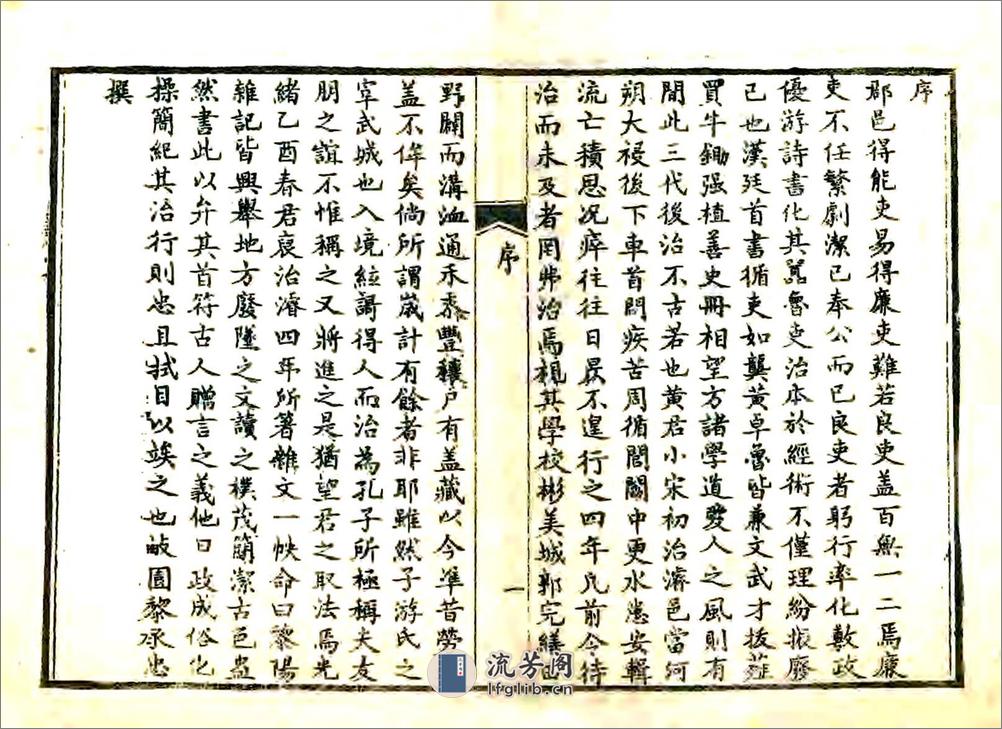 序
郡邑得能吏易得廉吏難若良吏盖百無一二焉廉
吏不任繁劇潔己奉公而已良吏者躬行率化敷政
優游詩書化其嚚魯吏治本於經術不僅理紛振廢
已也漢廷首書循吏如龔黃卓魯皆兼文武才拔薤
買牛鋤强植善史冊相望方諸學道愛人之風則有
間此三代後治不古若也黄君小宋初治濬邑當河
朔大祲後下車首問疾苦周循閭閻中更水患安輯
流亡積思况瘁往往日昃不遑行之四年凡前令待
治而未及者罔弗治焉視其學校彬美城郭完繕田
序
一
野闢而溝洫通禾黍豐穰戶有盖藏以今準昔勞
盖不侔矣倘所謂歲計有餘者非耶雖然子游氏之
宰武城也入境絃謌得人而治為孔子所極稱夫友
朋之誼不惟稱之又將進之是猶望君之取法焉光
緒乙酉春君裒治濬四年所著雜文一帙命曰黎陽
雜記皆興舉地方廢墜之文讀之樸茂簡潔古色盎
然書此以弁其首符古人贈言之義他日政成俗化
操簡紀其治行則忠且拭目以竢之也畝園黎承忠
撰
流芳阁
lfglib.cn